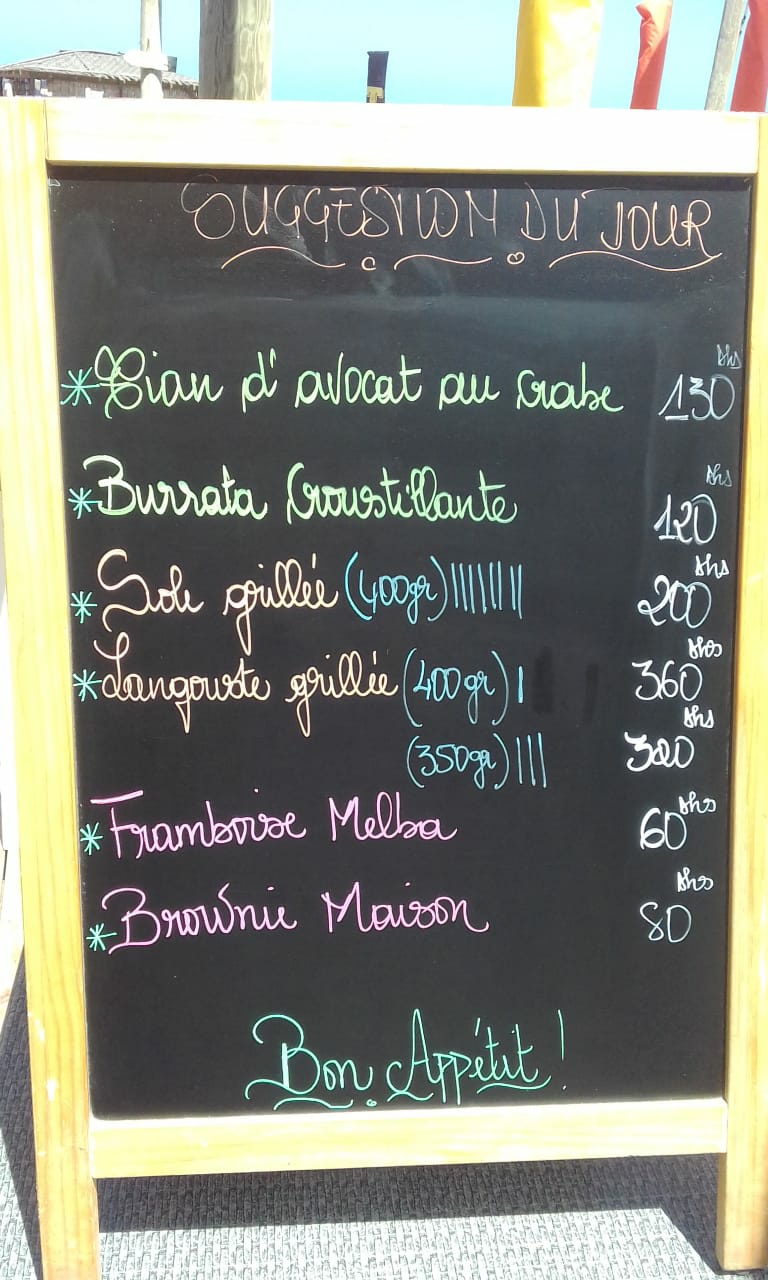 SUGGESTION DU JOUR
* Tian d'avocat au crabe 130 dhs
* Burrata Croustillante 120 dhs
* Sole grillée (400gr) |||||||| 200 dhs
* Langouste grillée (400gr) | 360 dhs
(350gr) ||| 320 dhs
* Framboise Melba 60 dhs
* Brownie Maison 80 dhs
Bon Appétit !